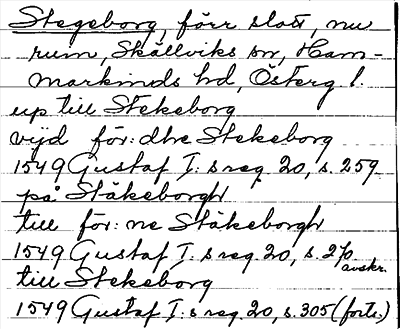 Stegeborg, förr slott, nu
ruin, Skällviks sn, Ham-
markinds hd, Österg. l.
up till Stekeborg
vijd för: dhe Stekeborg
1549 Gustaf I: s reg. 20, s. 259
på Stäkeborgh
till för: ne Stäkeborgh
1549 Gustaf I: s reg. 20, s. 270
avskr.
till Stekeborg
1549 Gustaf I: s reg. 20, s. 305 (forts.)